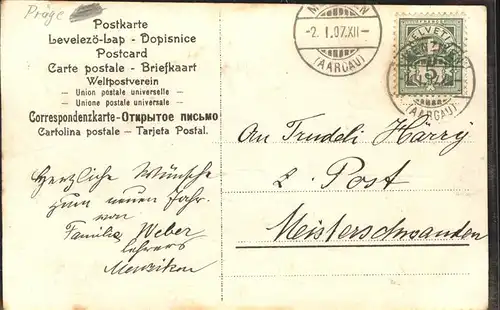 Präge
Postkarte
Levelezö-Lap - Dopisnice
Postcard
Carte postale - Briefkaart
Weltpostverein
- Union postale universelle -
- Unione postale universale -
Correspondenzkarte-Открытое письмо
Cartolina postale - Tarjeta Postal.
-2. I. 07.XII-
(AARGAU)
HELVETIA
5
(AARGAU)
An Trudeli Härry
z. Post
Meisterschwanden
Herzliche Wünsche
zum neuen Jahr.
von
Familie Weber
Lehrers
Menziken